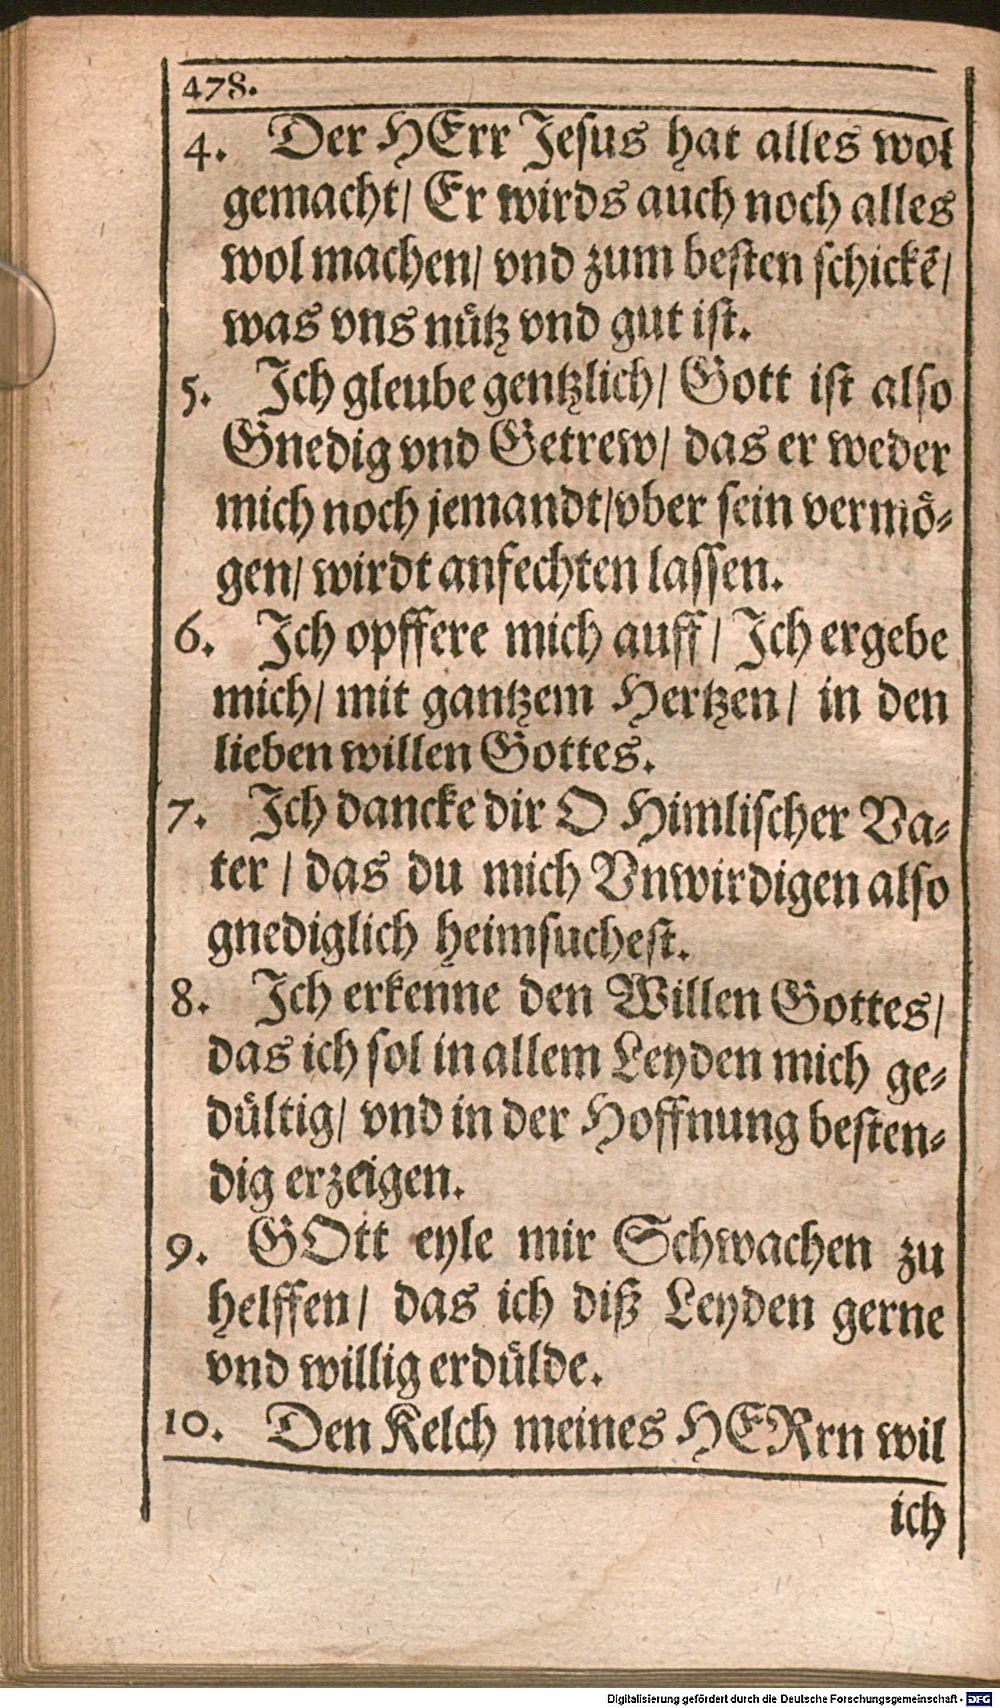 478.
4. Der HErr Jesus hat alles wol
gemacht/ Er wirds auch noch alles
wol machen/ vnd zum besten schickē/
was vns nuͤtz vnd gut ist.
5. Ich gleube gentzlich/ Gott ist also
Gnedig vnd Getrew/ das er weder
mich noch jemandt/vber sein vermoͤ⸗
gen/ wirdt anfechten lassen.
6. Ich opffere mich auff/ Ich ergebe
mich/ mit gantzem Hertzen/ in den
lieben willen Gottes.
7. Ich dancke dir O Himlischer Va⸗
ter / das du mich Vnwirdigen also
gnediglich heimsuchest.
8. Ich erkenne den Willen Gottes/
das ich sol in allem Leyden mich ge⸗
duͤltig/ vnd in der Hoffnung besten⸗
dig erzeigen.
9. GOtt eyle mir Schwachen zu
helffen/ das ich diß Leyden gerne
vnd willig erduͤlde.
10. Den Kelch meines HERrn wil
ich
Digitalisierung gefördert durch die Deutsche Forschungsgemeinschaft - DFG